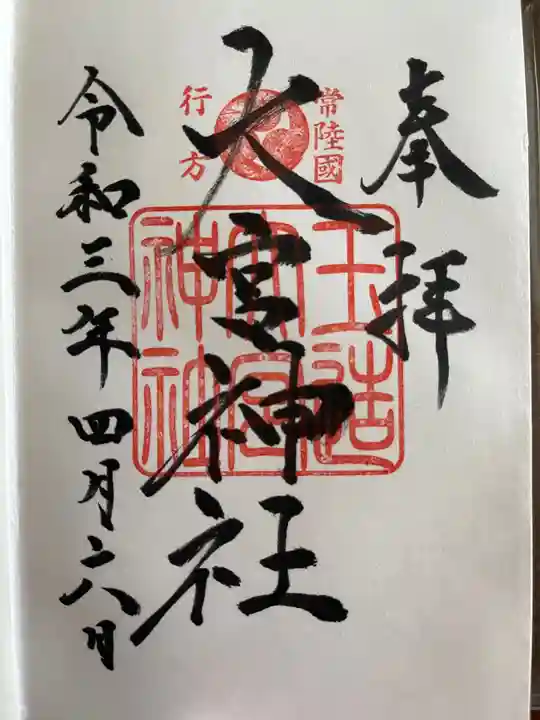 奉拝
常陸國
行方
大宮神社
玉造
大宮
神社
令和三年四月六日